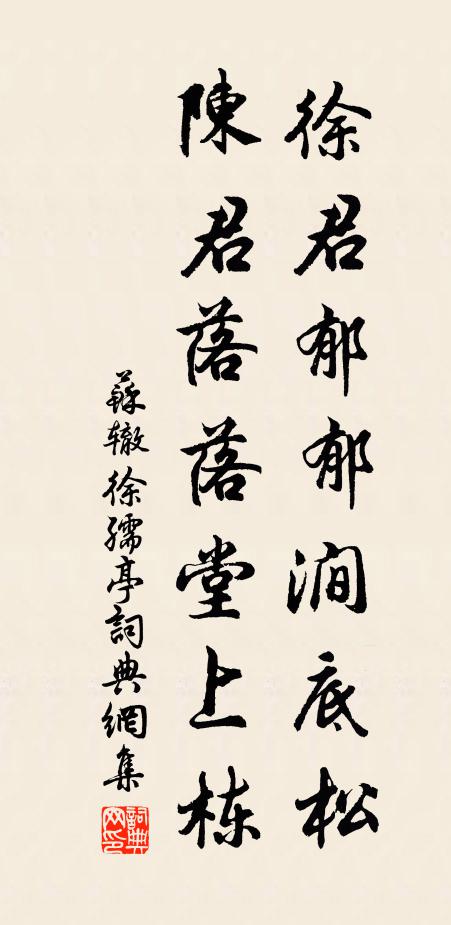 徐君郁郁澗底松
陳君落落堂上栋
蘇辙徐孺亭詞典網集
詞典网印